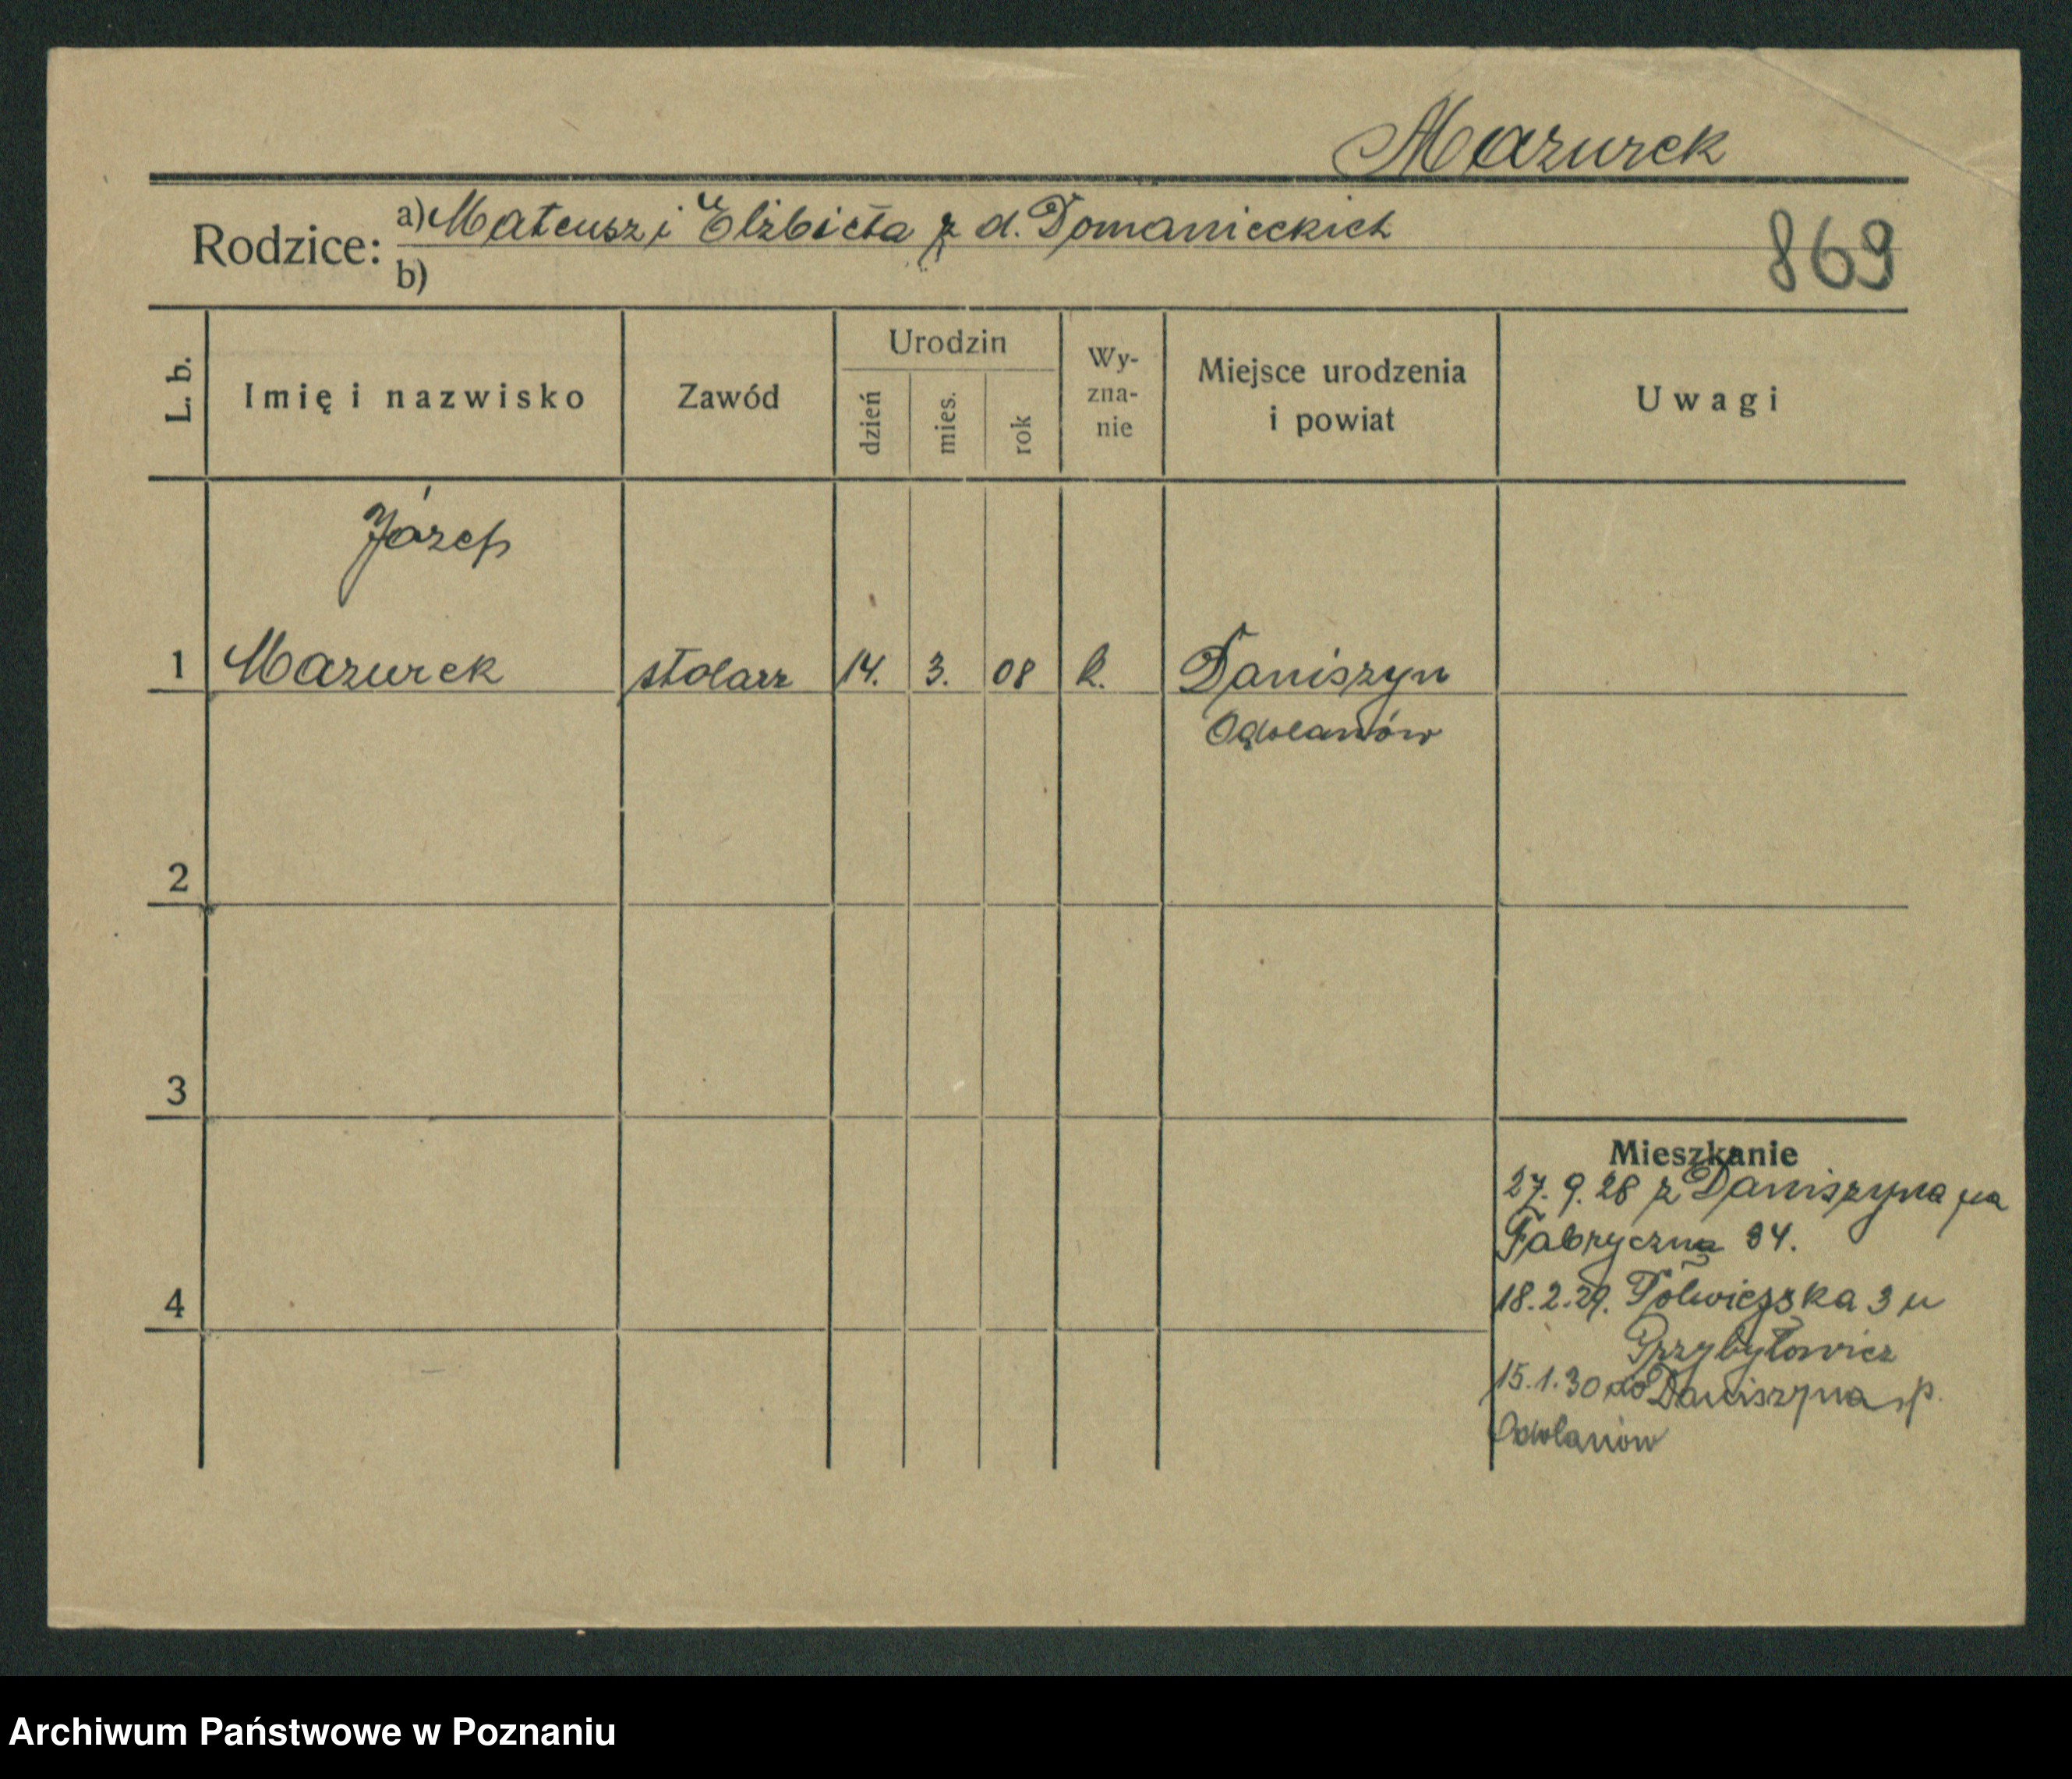 Mazurek
Rodzice: a) Mateusz i Elżbieta z d. Domanieckich
b)
869
L. b. Imię i nazwisko Zawód Urodzin dzień mies. rok Wy-zna-nie Miejsce urodzenia i powiat Uwagi
Józef
1 Mazurek stolarz 14. 3. 08 k. Daniszyn
Odolanów
2
3
Mieszkanie
27.9.28 z Daniszyna na
Fabryczna 34.
4
18.2.29. Półwiejska 3 u
Przybyłowicz
15.1.30 do Daniszyna p.
Odolanów
Archiwum Państwowe w Poznaniu